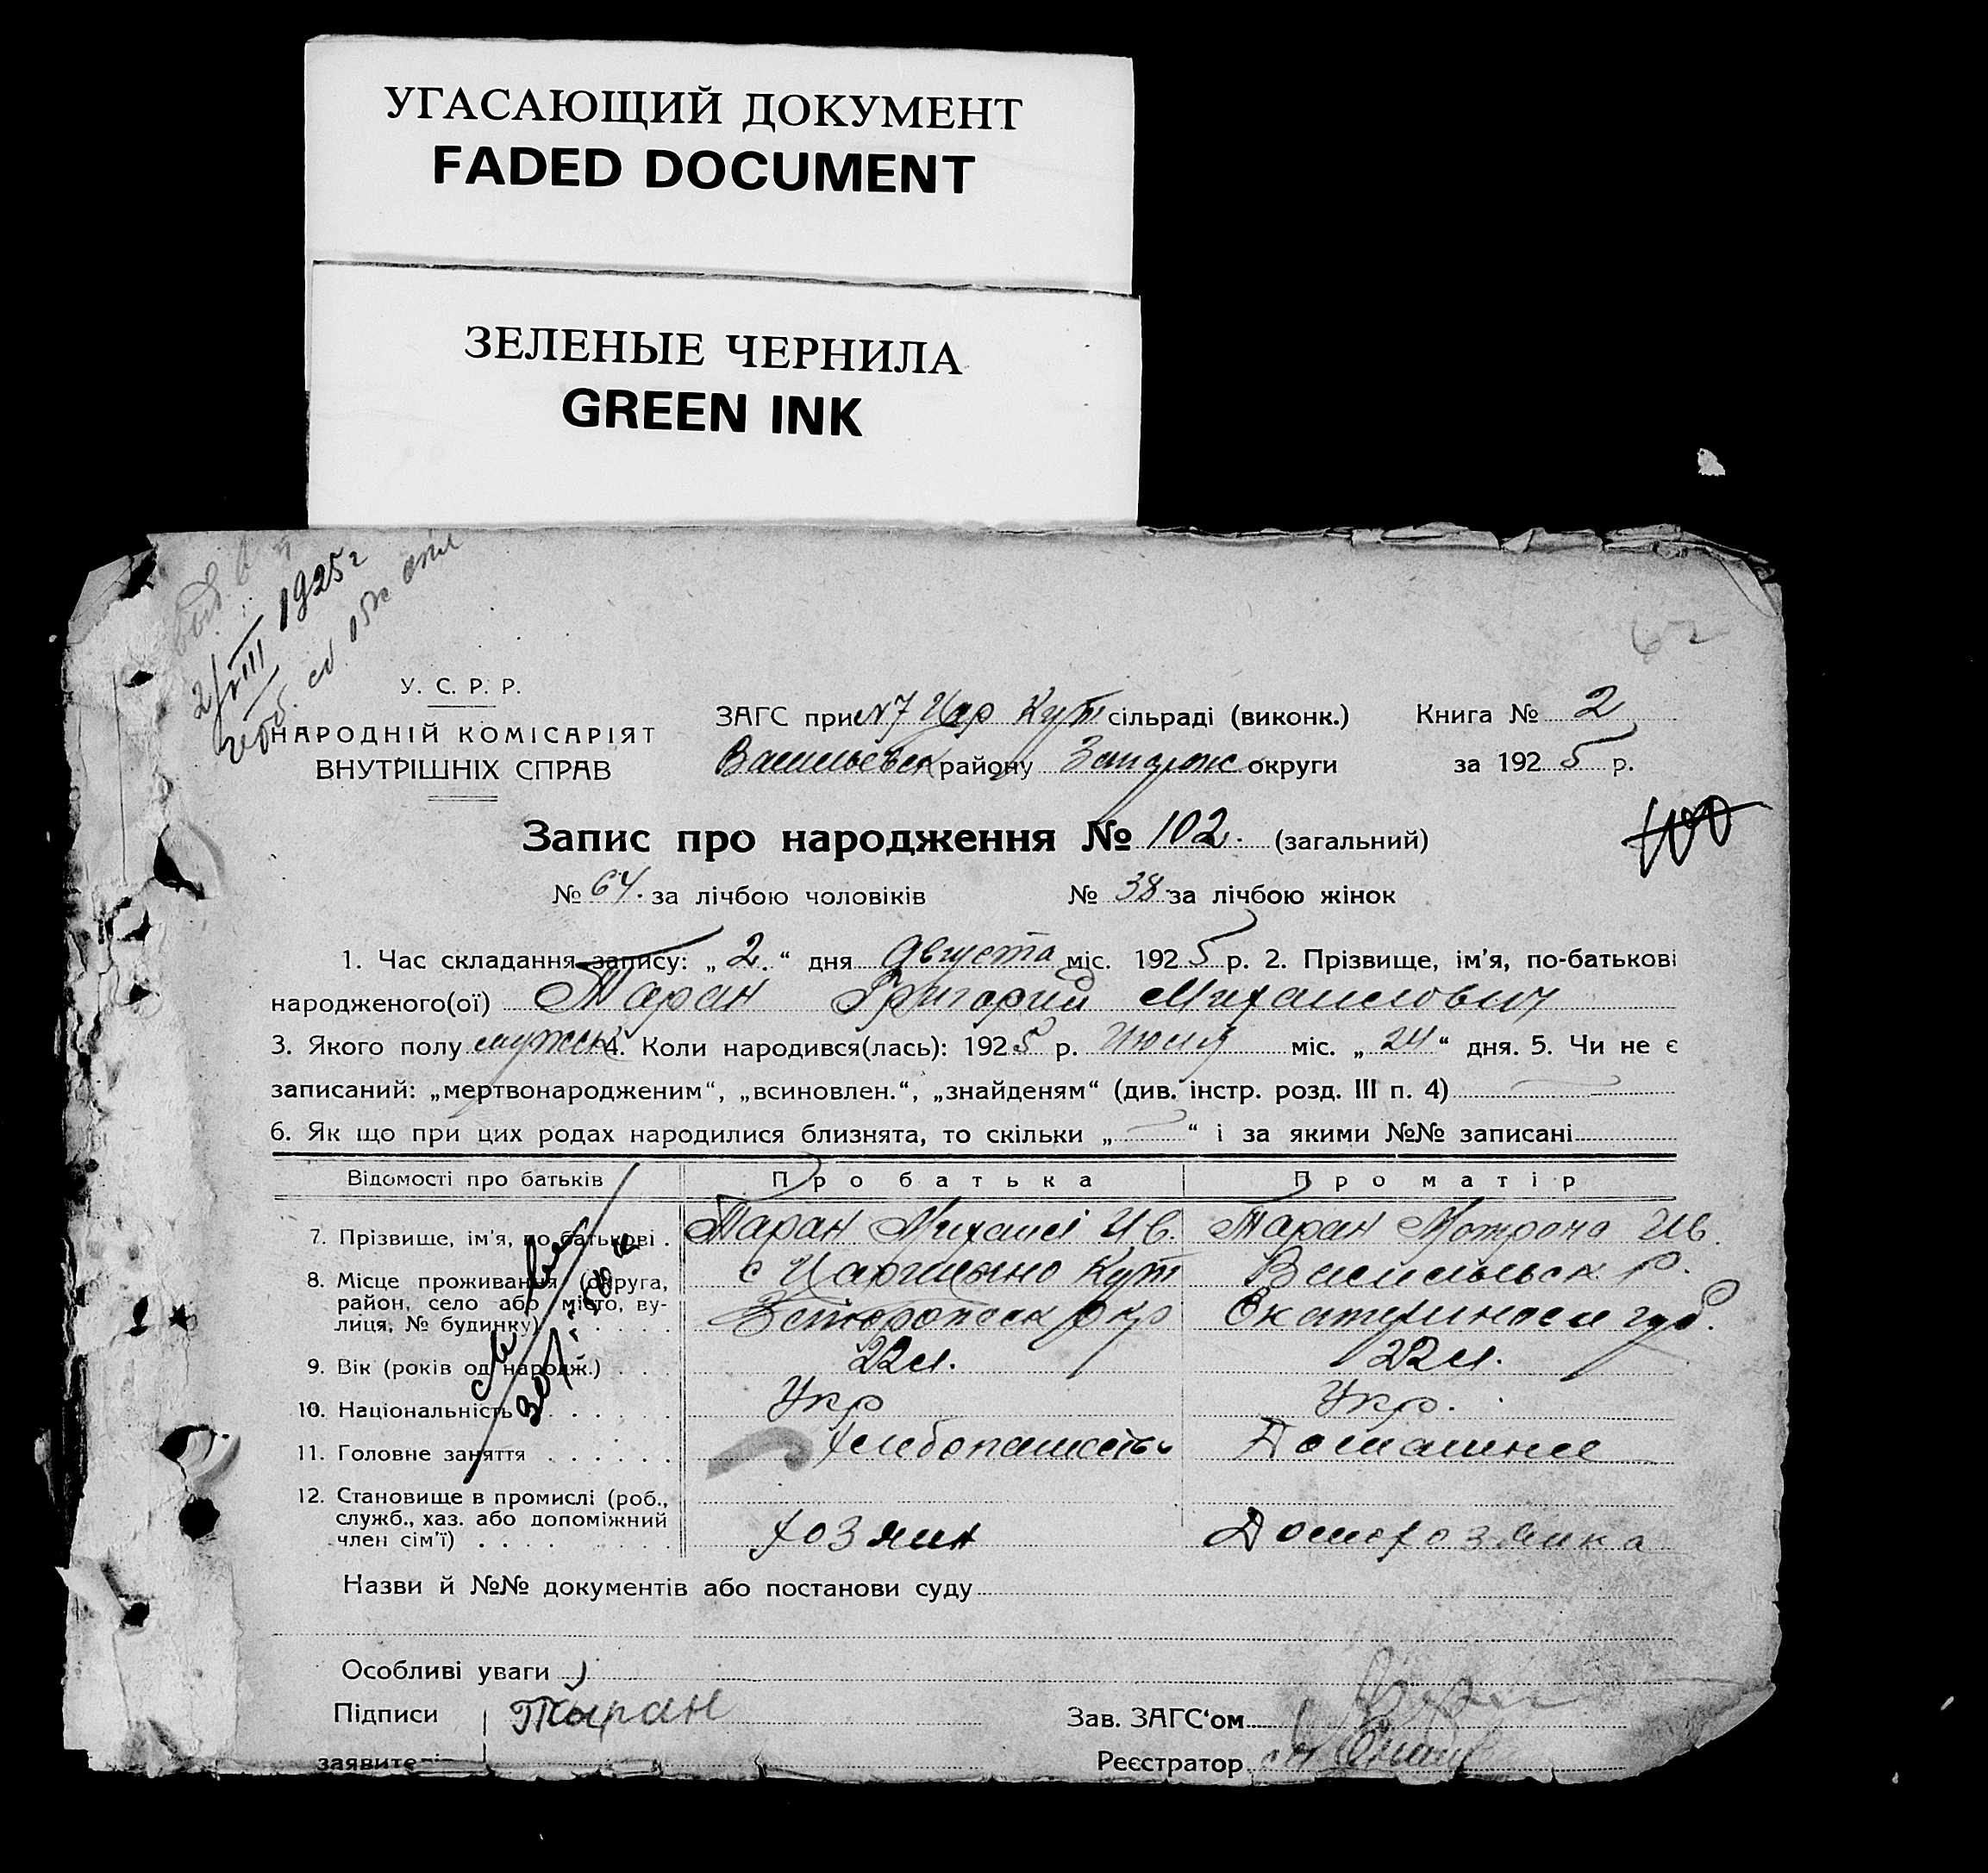 УГАСАЮЩИЙ ДОКУМЕНТ
FADED DOCUMENT
ЗЕЛЕНЫЕ ЧЕРНИЛА
GREEN INK
2/VIII 1925 г
У. С. Р. Р.
НАРОДНІЙ КОМІСАРІЯТ
ВНУТРІШНІХ СПРАВ
ЗАГС при №7 Цар Кут сільраді (виконк.) Книга № 2
Васильевск району Запорож округи за 1925 р.
100
Запис про народження № 102. (загальний)
№ 64. за лічбою чоловіків № 38 за лічбою жінок
1. Час складання запису: „2.“ дня Августа міс. 1925 р. 2. Прізвище, ім’я, по-батькові
народженого(ої) Таран Григорий Михаилович
3. Якого полу мужск 4. Коли народився(лась): 1925 р. Июля міс. „24“ дня. 5. Чи не є
записаний: „мертвонародженим“, „всиновлен.“, „знайденям“ (див. інстр. розд. III п. 4)
6. Як що при цих родах народилися близнята, то скільки „—“ і за якими №№ записані
Відомості про батьків Про батька Про матір
7. Прізвище, ім’я, по батькові . Таран Михаил Ив. Таран Мотрона Ив.
8. Місце проживання (округа, с Царицыно Кут Васильевск Р.
район, село або місто, ву-
лиця, № будинку) окр Екатеринослав губ.
9. Вік (років од народж.) . . . 22 л. 22 л.
10. Національність . . . . . . Укр Укр.
11. Головне заняття . . . . . . Хлебопашество Домашнее
12. Становище в промислі (роб.,
служб., хаз. або допоміжний
член сім’ї) . . . . . . . . Хозяин Домохозяйка
Назви й №№ документів або постанови суду
Особливі уваги
Підписи Таран Зав. ЗАГС‘ом
заявителів Реєстратор